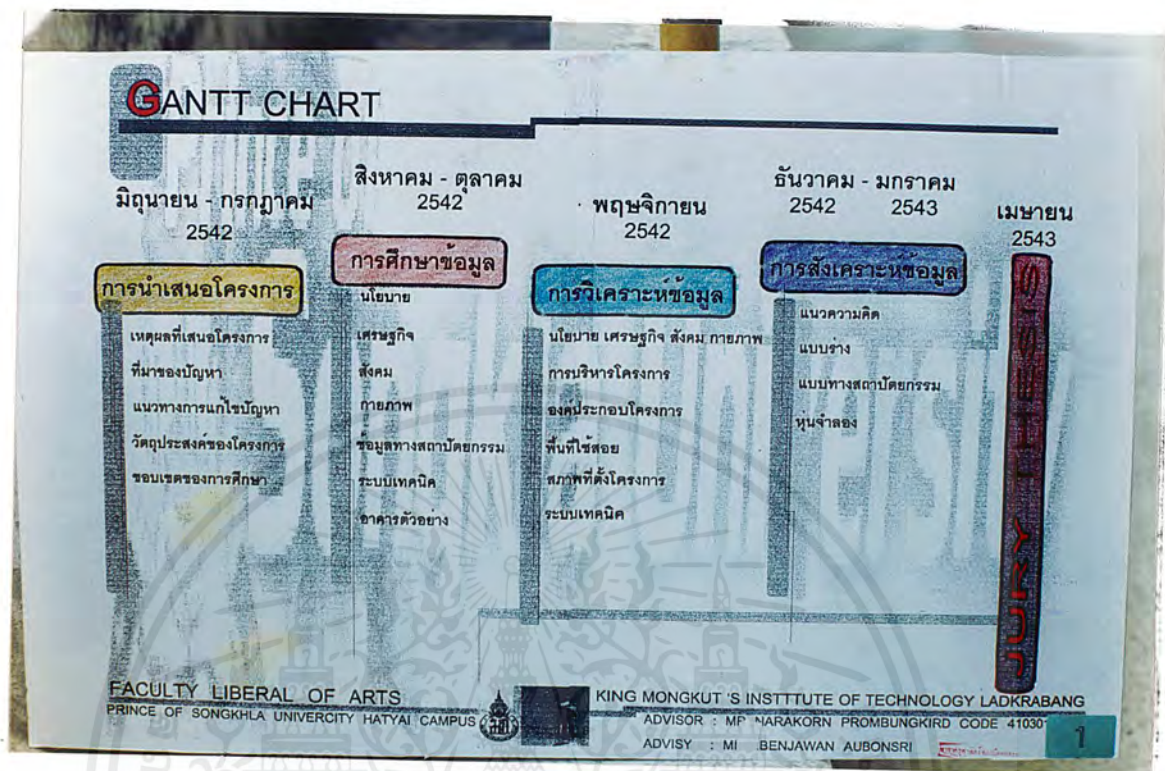 GANTT CHART
มิถุนายน - กรกฎาคม
2542
การนำเสนอโครงการ
เหตุผลที่เสนอโครงการ
ที่มาของปัญหา
แนวทางการแก้ไขปัญหา
วัตถุประสงค์ของโครงการ
ขอบเขตของการศึกษา
สิงหาคม - ตุลาคม
2542
การศึกษาข้อมูล
นโยบาย
เศรษฐกิจ
สังคม
กายภาพ
ข้อมูลทางสถาปัตยกรรม
ระบบเทคนิค
อาคารตัวอย่าง
พฤษจิกายน
2542
การวิเคราะห์ข้อมูล
นโยบาย เศรษฐกิจ สังคม กายภาพ
การบริหารโครงการ
องค์ประกอบโครงการ
พื้นที่ใช้สอย
สภาพที่ตั้งโครงการ
ระบบเทคนิค
ธันวาคม - มกราคม
2542 2543
การสังเคราะห์ข้อมูล
แนวความคิด
แบบร่าง
แบบทางสถาปัตยกรรม
หุ่นจำลอง
เมษายน
2543
JURY THESIS
FACULTY LIBERAL OF ARTS
PRINCE OF SONGKHLA UNIVERCITY HATYAI CAMPUS
KING MONGKUT 'S INSTTTUTE OF TECHNOLOGY LADKRABANG
ADVISOR : NARAKORN PROMBUNGKIRD CODE
ADVISY : BENJAWAN AUBONSRI
1